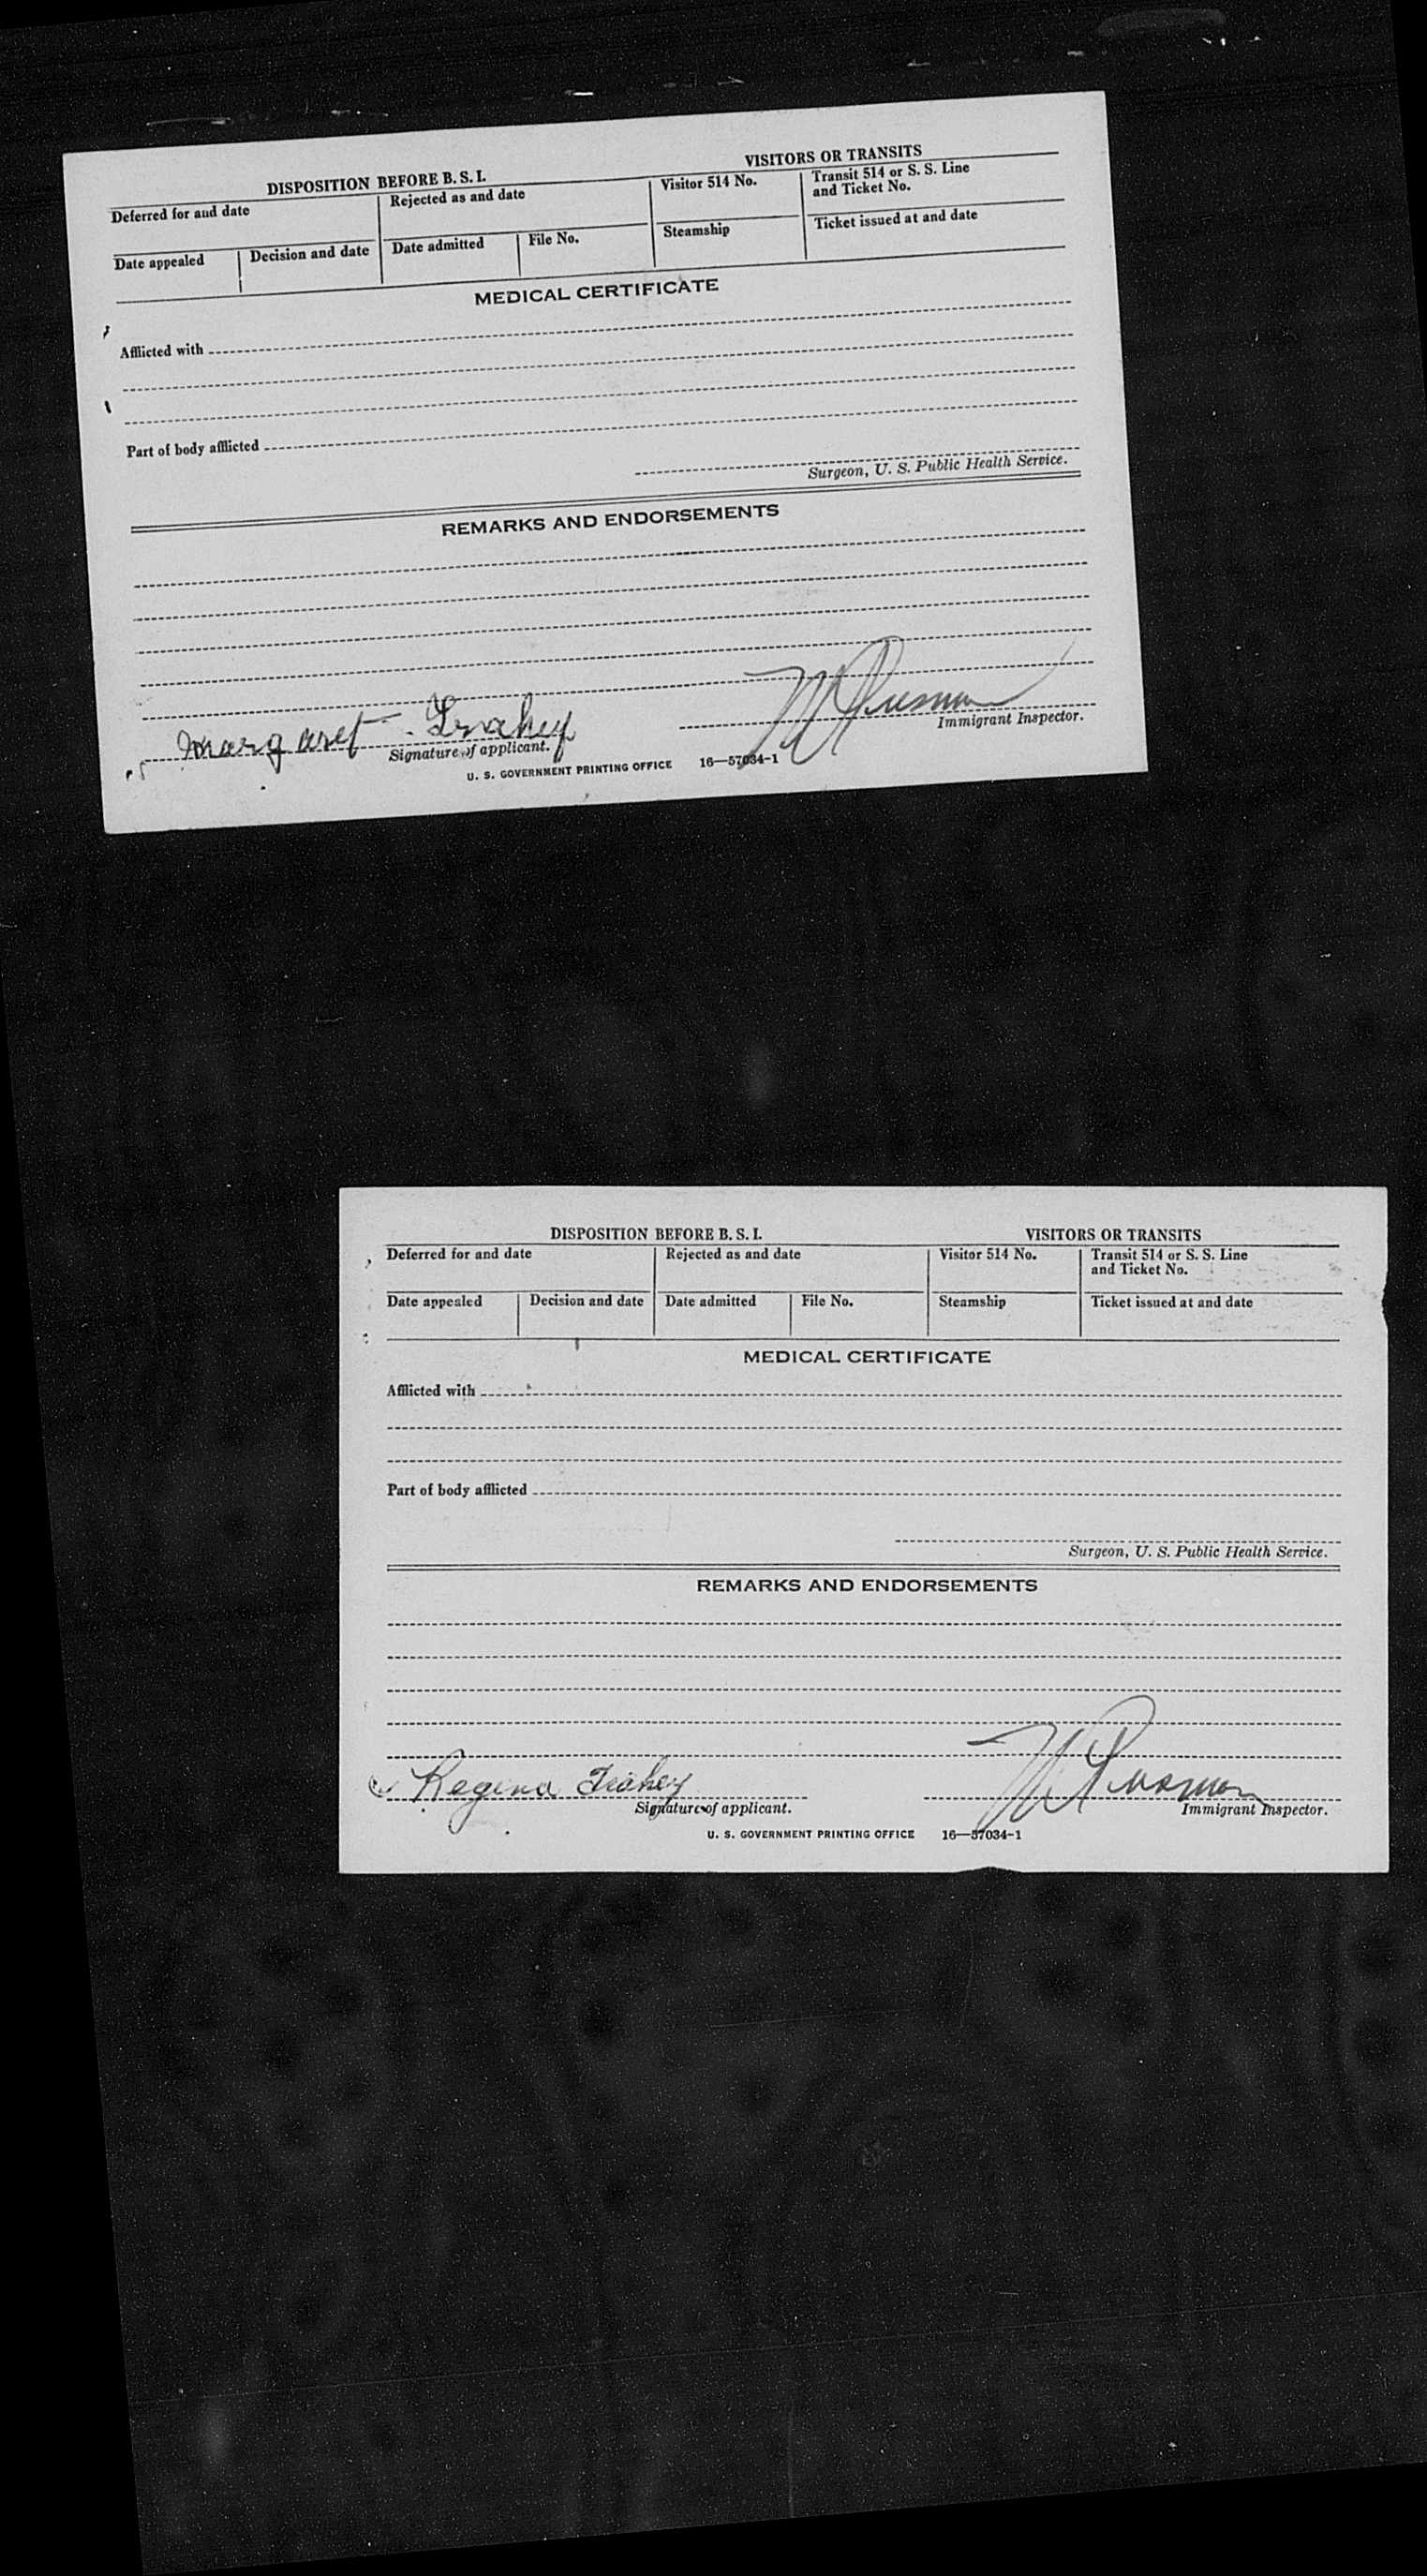 DISPOSITION BEFORE B. S. I. VISITORS OR TRANSITS
Deferred for and date Rejected as and date Visitor 514 No. Transit 514 or S. S. Line
and Ticket No.
Date appealed Decision and date Date admitted File No. Steamship Ticket issued at and date
MEDICAL CERTIFICATE
Afflicted with
Part of body afflicted
Surgeon, U. S. Public Health Service.
REMARKS AND ENDORSEMENTS
Margaret
Signature of applicant. Immigrant Inspector.
U. S. GOVERNMENT PRINTING OFFICE 16—57034-1
DISPOSITION BEFORE B. S. I. VISITORS OR TRANSITS
Deferred for and date Rejected as and date Visitor 514 No. Transit 514 or S. S. Line
and Ticket No.
Date appealed Decision and date Date admitted File No. Steamship Ticket issued at and date
MEDICAL CERTIFICATE
Afflicted with
Part of body afflicted
Surgeon, U. S. Public Health Service.
REMARKS AND ENDORSEMENTS
Regina
Signature of applicant. Immigrant Inspector.
U. S. GOVERNMENT PRINTING OFFICE 16—57034-1